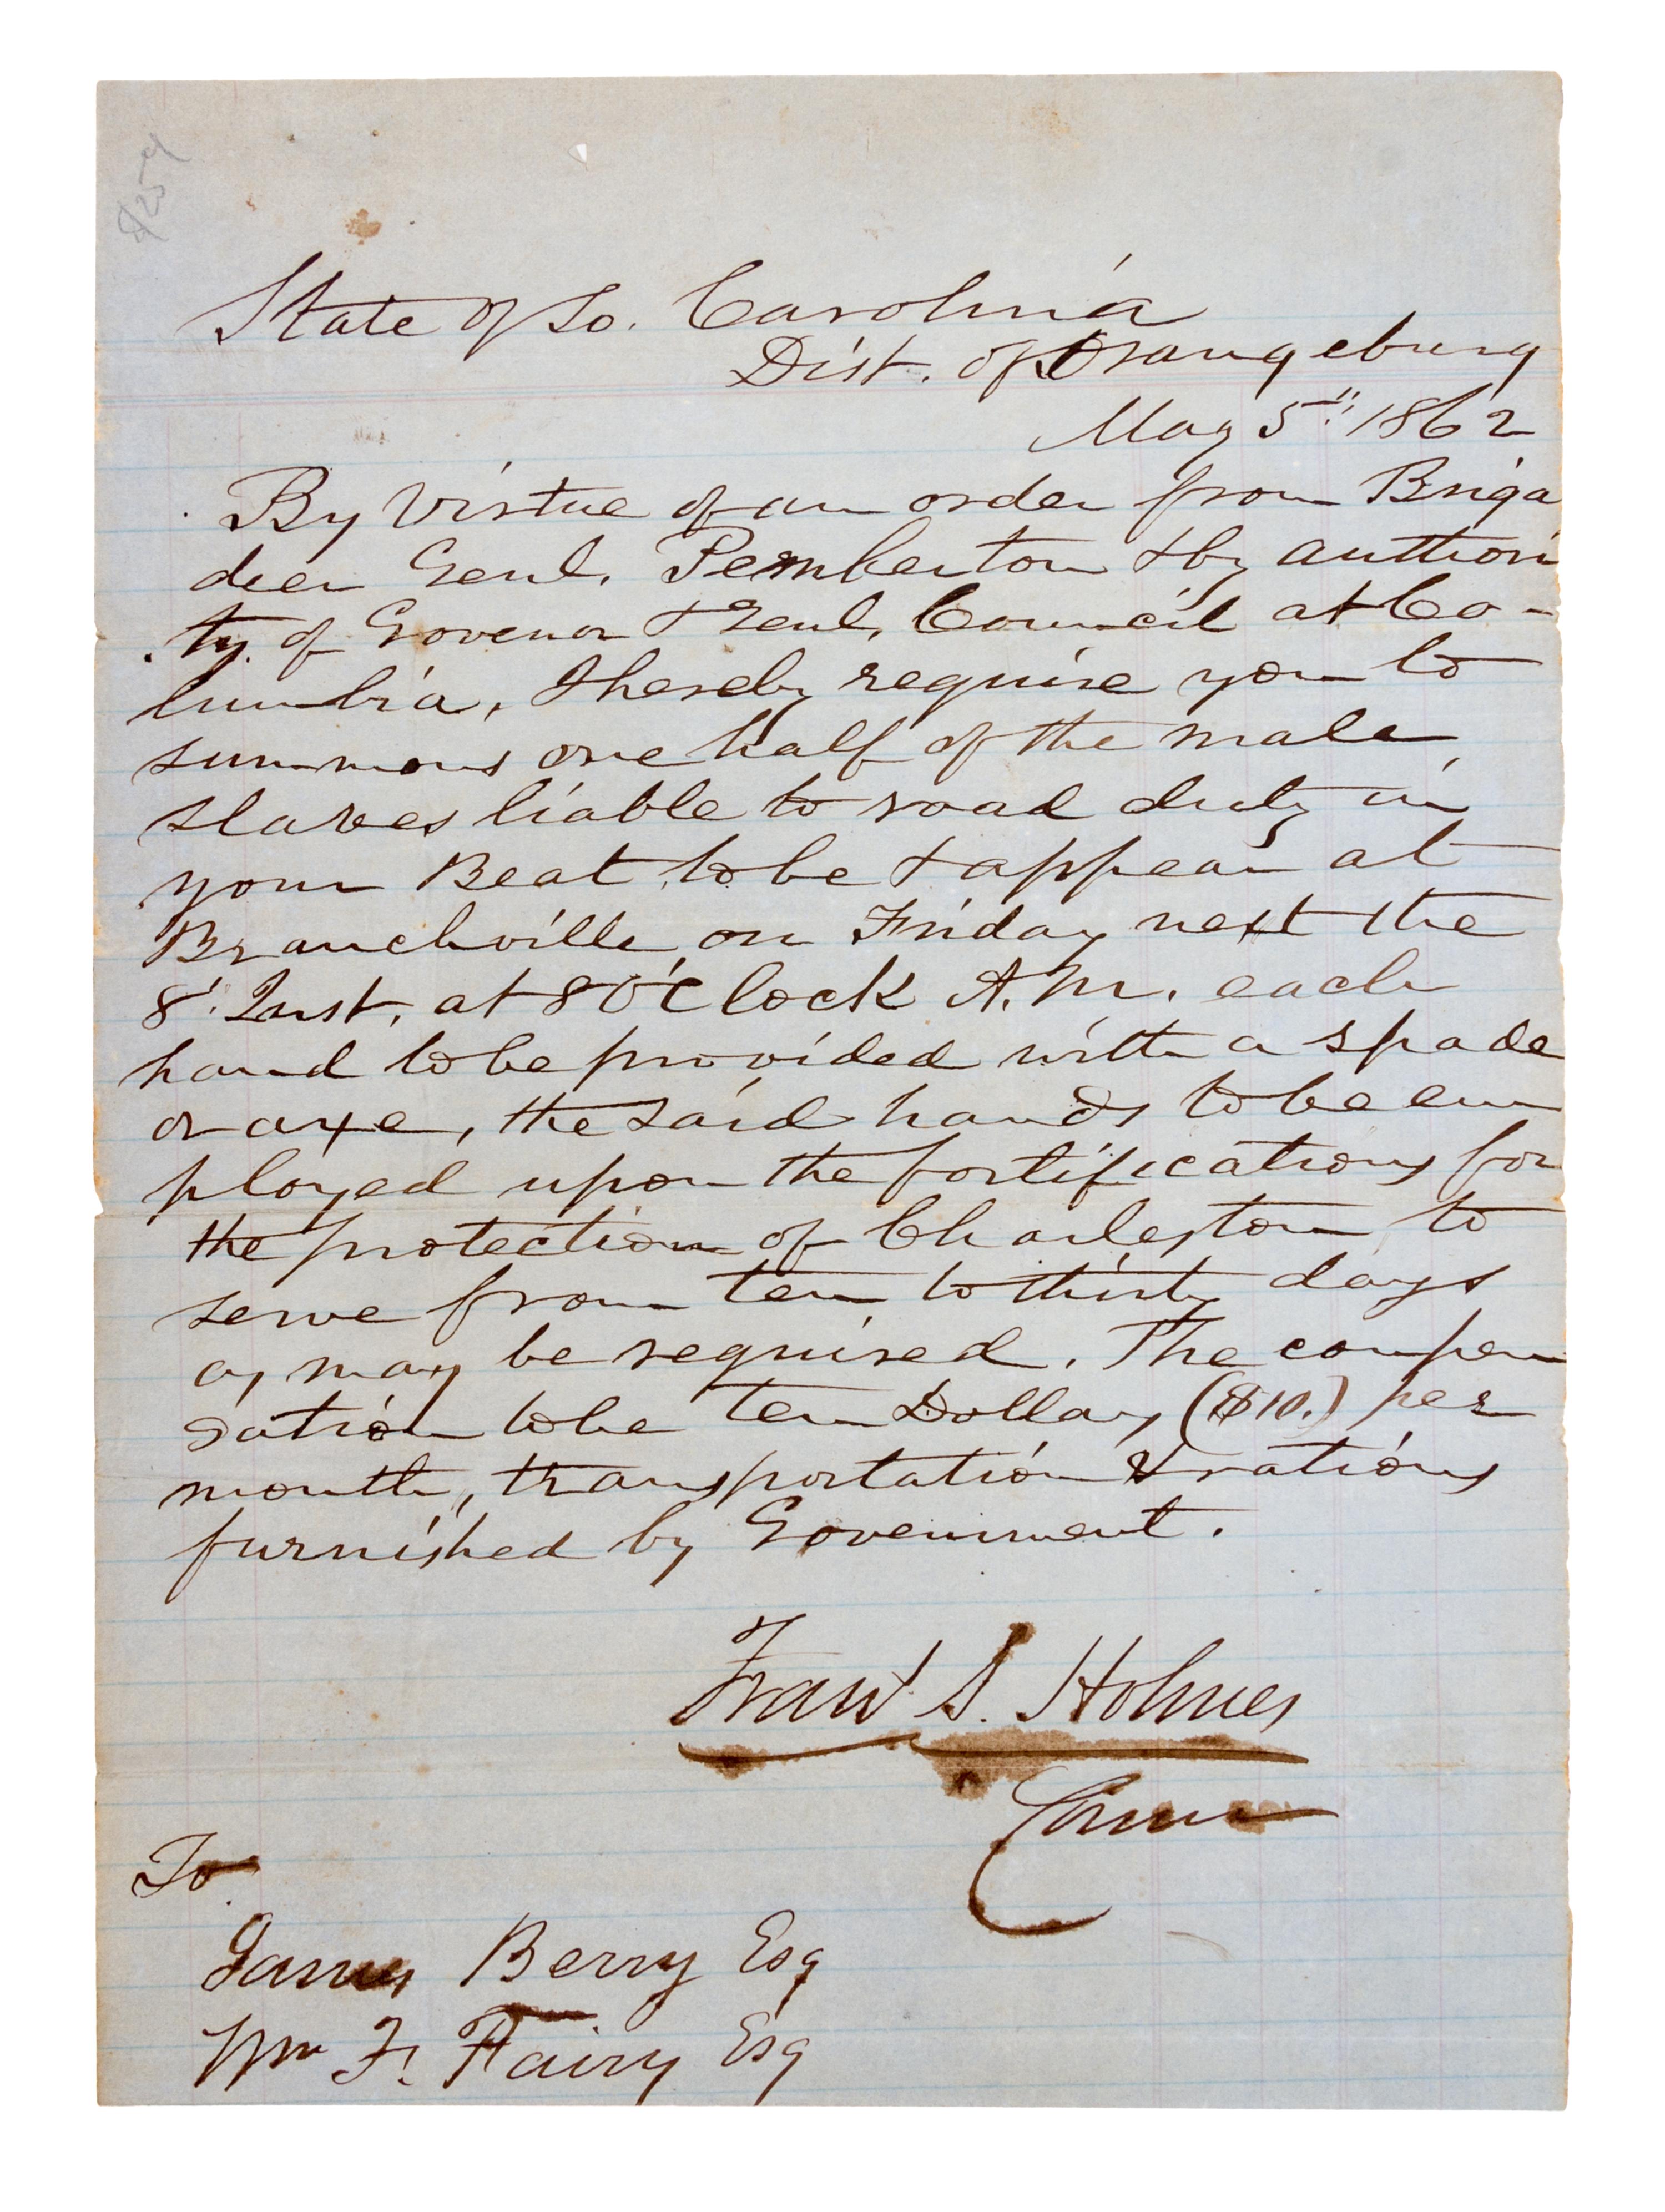 $25
State of So. Carolina
Dist. of Orangeburg
May 5" 1862
By virtue of an order from Briga
deer Genl. Pemberton & by authori
ty of Govenor & Genl. Council at Co-
lumbia, I hereby require you to
summons one half of the male
slaves liable to road duty in
your Beat to be & appear at
Branchville on Friday next the
8' Inst. at 8 O'Clock A.M. each
hand to be provided with a spade
or axe, the said hands to be em
ployed upon the fortifications for
the protection of Charleston to
serve from ten to thirty days
as may be required. The compen
sation to be ten Dollars ($10.) per
month, transportation & rations
furnished by Government.
S. Holmes
To
James Berry Esq
Wm F. Fairy Esq